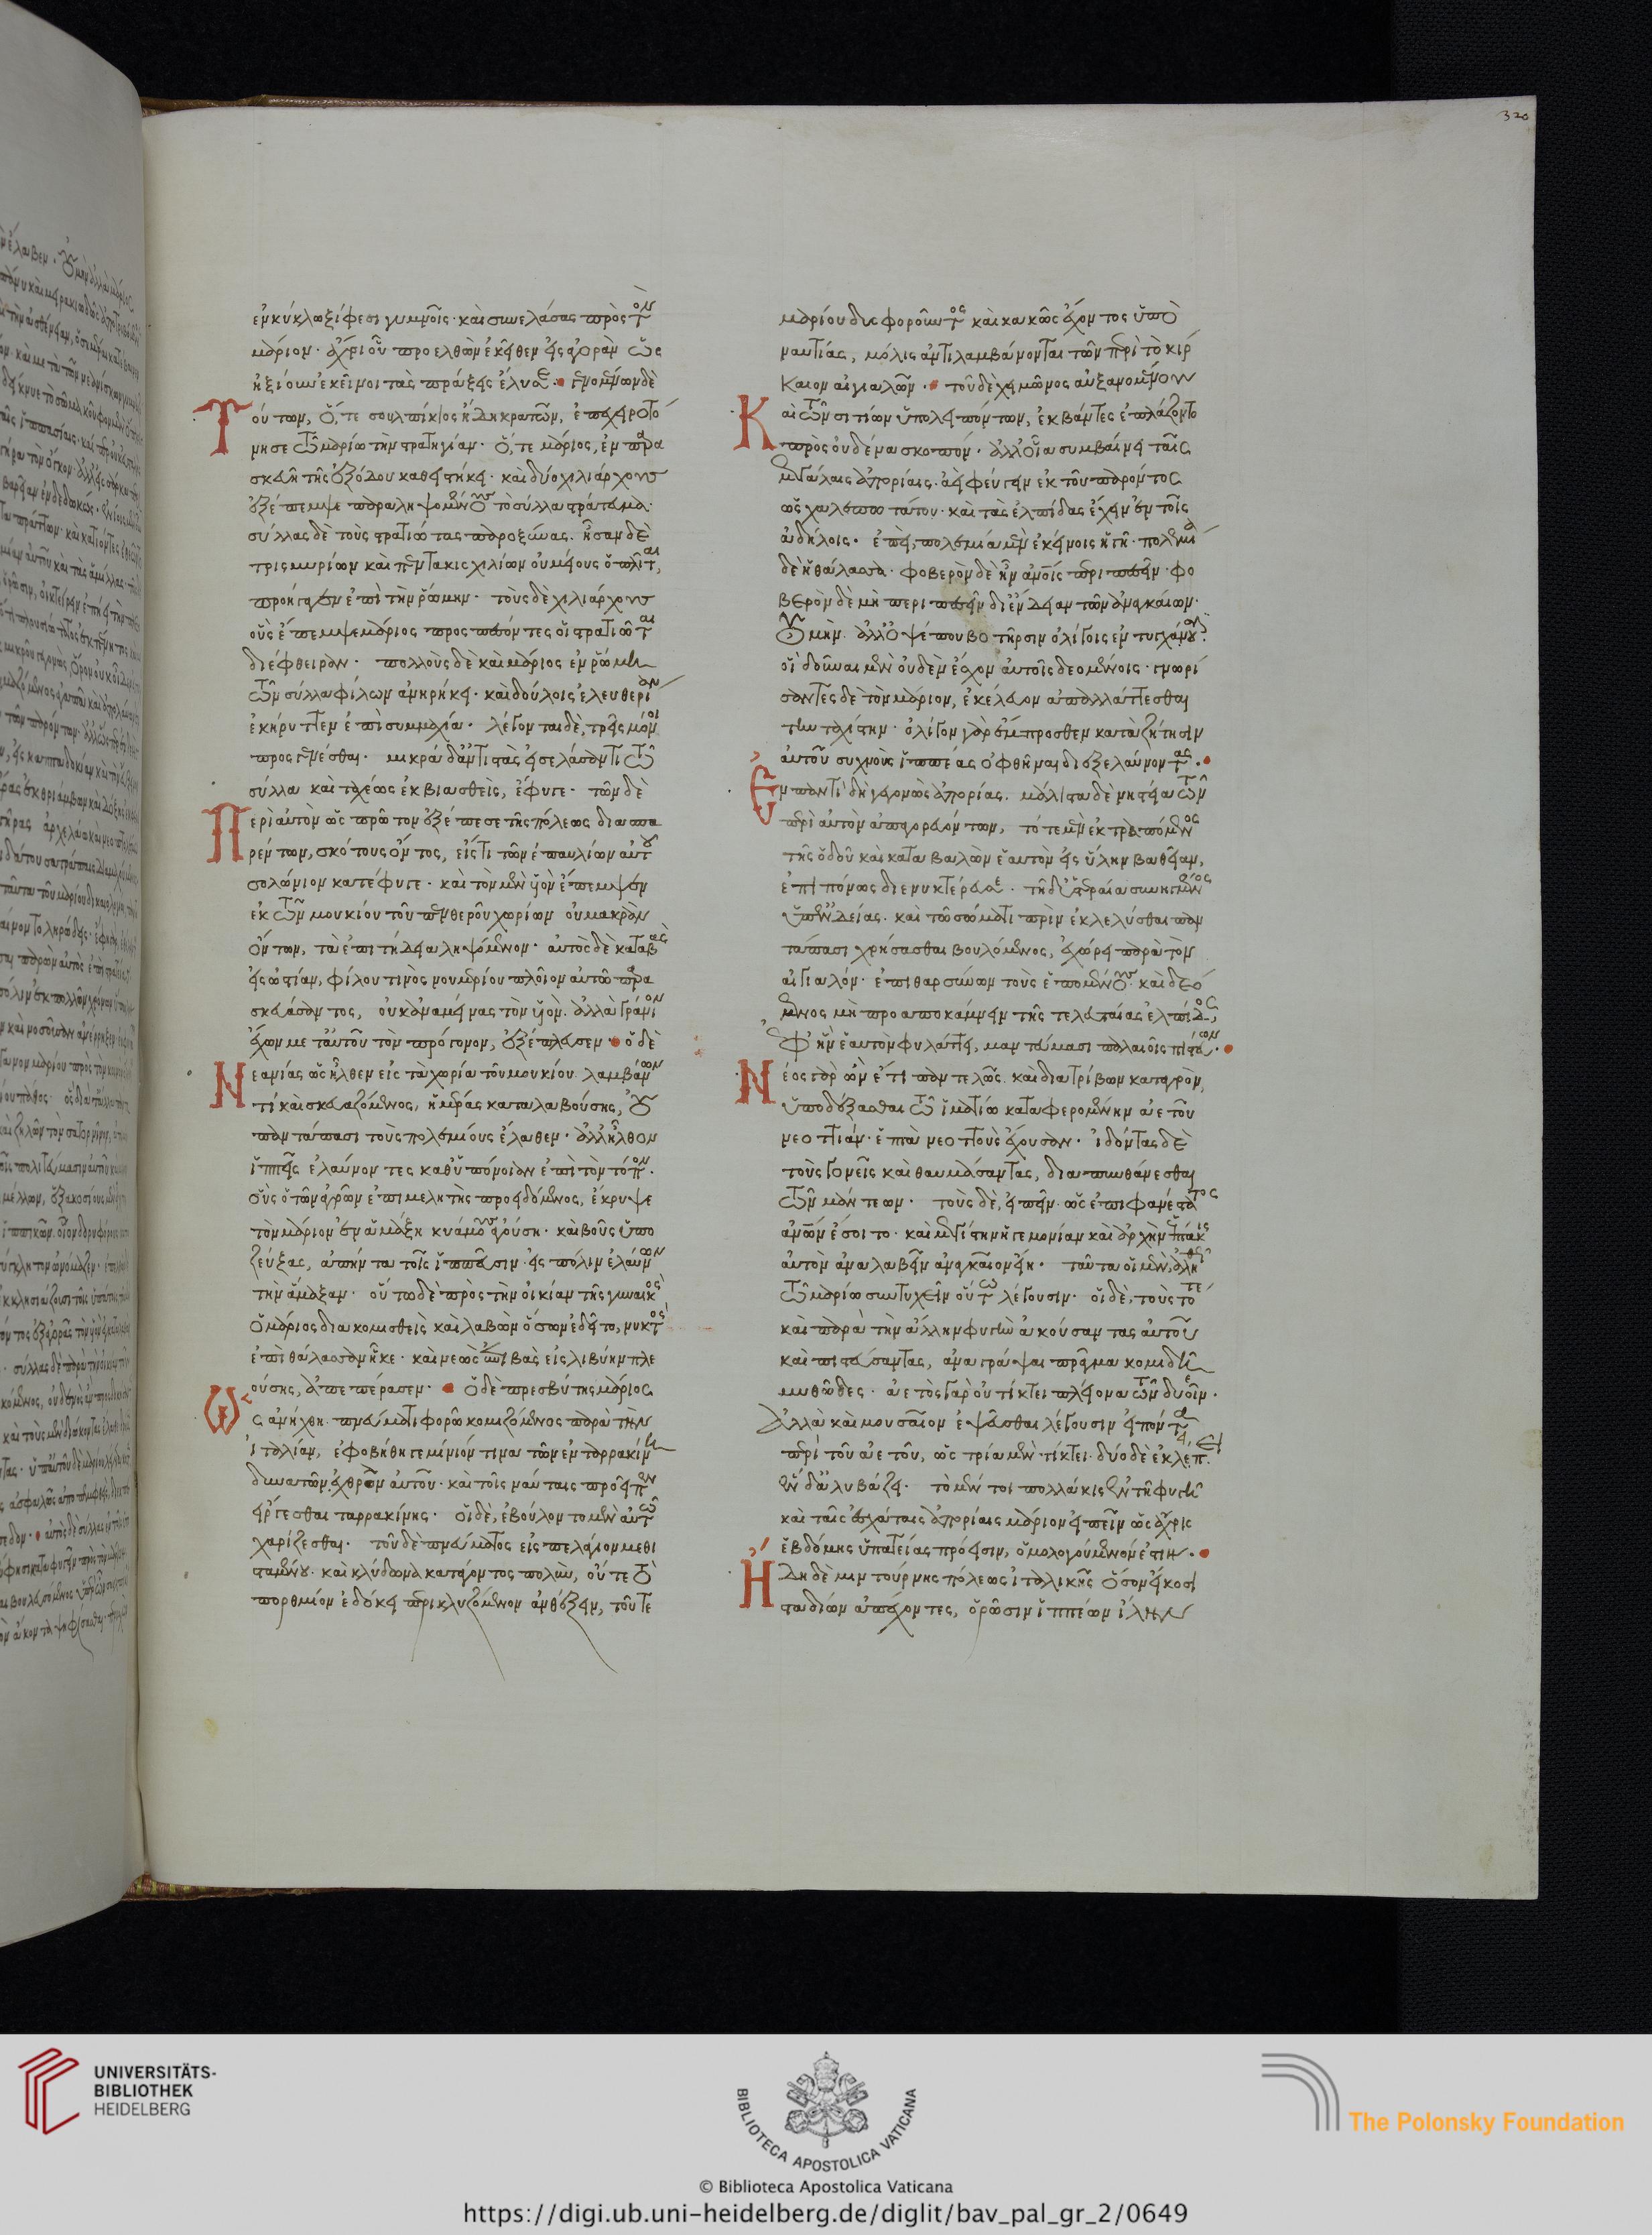 ἐν κύκλω ξίφεσι γυμνοῖς. καὶ συνελάσας πρὸς τὸν
μάριον. ἄχρι οὗ προελθὼν ἐκεῖθεν εἰς ἀγορὰν ὡς
ἠξίουν ἐκεῖνοι τὰς πράξεις ἔλυσε. γενομένων δὲ
Τούτων, ὅ, τε σουλπίκιος ἤδη κρατῶν, ἐπεχειροτό
νησε τῶ μαρίω τὴν στρατηγίαν. ὅ, τε μάριος, ἐν παρα
σκευῆ τῆς ἐξόδου καθειστήκει. καὶ δύο χιλιάρχους
ἐξέπεμψε παραληψομένους τὸ σύλλα στράτευμα.
σύλλας δὲ τοὺς στρατιώτας παροξύνας. ἦσαν δὲ
τρισμυρίων καὶ πεντακισχιλίων οὐ μείους ὁπλῖται,
προῆγεν ἐπὶ τὴν ῥώμην. τοὺς δὲ χιλιάρχους
οὓς ἔπεμψε μάριος προσπεσόντες οἱ στρατιῶται
διέφθειραν. πολλοὺς δὲ καὶ μάριος ἐν ῥώμη
τῶν σύλλα φίλων ἀνηρήκει. καὶ δούλοις ἐλευθερίαν
ἐκήρυττεν ἐπὶ συμμαχία. λέγονται δὲ, τρεῖς μόνοι
προσγενέσθαι. μικρὰ δ' ἀντιστὰς εἰσελάσαντι τῶ
σύλλα καὶ ταχέως ἐκβιασθεὶς, ἔφυγε. τῶν δὲ
Περὶ αὐτὸν ὡς πρῶτον ἐξέπεσε τῆς πόλεως διασπα
ρέντων, σκότους ὄντος, εἴς τι τῶν ἐπαυλίων αὐτοῦ
σολώνιον κατέφυγε. καὶ τὸν μὲν υἱὸν ἔπεμψεν
ἐκ τῶν μουκίου τοῦ πενθεροῦ χωρίων οὐ μακρὰν
ὄντων, τὰ ἐπιτήδεια ληψόμενον. αὐτὸς δὲ καταβὰς
εἰς ὠστίαν, φίλου τινὸς νουμερίου πλοῖον αὐτῶ παρα
σκευάσαντος, οὐκ ἀναμείνας τὸν υἱὸν. ἀλλὰ γράνιον
ἔχων μετ' αὐτοῦ τὸν πρόγονον, ἐξέπλευσεν. ὁ δὲ
Νεανίας ὡς ἦλθεν εἰς τὰ χωρία τοῦ μουκίου. λαμβάνων
τί καὶ σκευαζόμενος, ἡμέρας καταλαβούσης, οὐ
παντάπασι τοὺς πολεμίους ἔλαθεν. ἀλλ' ἦλθον
ἱππεῖς ἐλαύνοντες καθ' ὑπόνοιαν ἐπὶ τὸν τόπον.
οὓς ὁ τῶν ἀγρῶν ἐπιμελητὴς προειδόμενος, ἔκρυψε
τὸν μάριον ἐν ἁμάξη κυάμους ἀγούση. καὶ βοῦς ὑπο
ζεύξας, ἀπήντα τοῖς ἱππεῦσιν. εἰς πόλιν ἐλαύνων
τὴν ἅμαξαν. οὕτω δὲ πρὸς τὴν οἰκίαν τῆς γυναικὸς
ὁ μάριος διακομισθεὶς καὶ λαβὼν ὅσων ἐδεῖτο, νυκτὸς
ἐπὶ θάλασσαν ἧκε. καὶ νεὼς ἐπιβὰς εἰς λιβύην πλε
ούσης, ἀπεπέρασεν. ὁ δὲ πρεσβύτης μάριος
Ὡς ἀνήχθη. πνεύματι φορῶ κομιζόμενος παρὰ τὴν
ἰταλίαν, ἐφοβήθη γεμίνιόν τινα τῶν ἐν ταρρακίνη
δυνατῶν, ἐχθρὸν αὐτοῦ. καὶ τοῖς ναύταις προεῖπεν
εἴργεσθαι ταρρακίνης. οἱ δὲ, ἐβούλοντο μὲν αὐτῶ
χαρίζεσθαι. τοῦ δὲ πνεύματος εἰς πελάγιον μεθι
σταμένου. καὶ κλύδωνα κατάγοντος πολὺν, οὔτε τὸ
πορθμίον ἐδόκει περικλυζόμενον ἀνθέξειν, τοῦ τε
μαρίου δυσφοροῦντος καὶ κακῶς ἔχοντος ὑπὸ
ναυτίας, μόλις ἀντιλαμβάνονται τῶν περὶ τὸ κιρ
καιον αἰγιαλῶν. τοῦ δὲ χειμῶνος αὐξανομένου
Καὶ τῶν σιτίων ὑπολειπόντων, ἐκβάντες ἐπλάζοντο
πρὸς οὐδένα σκοπόν. ἀλλ' οἷα συμβαίνει ταῖς
μεγάλαις ἀπορίαις. ἀεὶ φεύγειν ἐκ τοῦ παρόντος
ὡς χαλεπωτάτου. καὶ τὰς ἐλπίδας ἔχειν ἐν τοῖς
ἀδήλοις. ἐπεὶ, πολεμία μὲν ἐκείνοις ἡ γῆ. πολεμία
δὲ ἡ θάλασσα. φοβερὸν δὲ ἦν ἀνθρώποις περιπεσεῖν. φο
βερὸν δὲ μὴ περιπεσεῖν δι' ἔνδειαν τῶν ἀναγκαίων.
Οὐ μὴν ἀλλ' ὀψέ που βοτῆρσιν ὀλίγοις ἐντυγχάνουσιν.
οἳ δοῦναι μὲν οὐδὲν ἔσχον αὐτοῖς δεομένοις. γνωρί
σαντες δὲ τὸν μάριον, ἐκέλευον ἀπαλλάττεσθαι
τὴν ταχίστην. ὀλίγον γὰρ ἔμπροσθεν κατὰ ζήτησιν
αὐτοῦ συχνοὺς ἱππέας ὀφθῆναι διεξελαύνοντας.
Ἐν παντὶ δὴ γεγονὼς ἀπορίας. μάλιστα δὲ νηστεία τῶν
περὶ αὐτὸν ἀπαγορευόντων, τότε μὲν ἐκτραπόμενος
τῆς ὁδοῦ καὶ καταβαλὼν ἑαυτὸν εἰς ὕλην βαθεῖαν,
ἐπιπόνως διενυκτέρευσε. τῆ δ' ὑστεραία συνηγμένος
ὑπ' ἐνδείας. καὶ τῶ σώματι πρὶν ἐκλελύσθαι παν
τάπασι χρήσασθαι βουλόμενος, ἐχώρει παρὰ τὸν
αἰγιαλόν. ἐπιθαρσύνων τοὺς ἑπομένους. καὶ δεό
μενος μὴ προαποκάμψειν τῆς τελευταίας ἐλπίδος,
ἐφ' ἣν ἑαυτὸν φυλάττει, μαντεύμασι παλαιοῖς πιστεύων.
Νέος γὰρ ὢν ἔτι παντελῶς. καὶ διατρίβων κατ' ἀγρὸν,
ὑποδέξασθαι τῶ ἱματίω καταφερομένην ἀετοῦ
νεοττιάν. ἑπτὰ νεοττοὺς ἔχουσαν. ἰδόντας δὲ
τοὺς γονεῖς καὶ θαυμάσαντας, διαπυνθάνεσθαι
τῶν μάντεων. τοὺς δὲ, εἰπεῖν. ὡς ἐπιφανέστατος
ἀνθρώπων ἔσοιτο. καὶ μεγίστην ἡγεμονίαν καὶ ἀρχὴν ἑπτάκις
αὐτὸν ἀναλαβεῖν ἀναγκαῖον εἴη. ταῦτα οἱ μὲν, ἀληθῆ
τῶ μαρίω συντυχεῖν οὕτω λέγουσιν. οἱ δὲ, τοὺς τότε
καὶ παρὰ τὴν ἄλλην φυγὴν ἀκούσαντας αὐτοῦ
καὶ πιστεύσαντας, ἀναγράψαι πρᾶγμα κομιδῆ
μυθῶδες. ἀετὸς γὰρ οὐ τίκτει πλείονα τῶν δυοῖν.
Ἀλλὰ καὶ μουσαῖον ἐψεῦσθαι λέγουσιν εἰπόντα
περὶ τοῦ ἀετοῦ, ὡς τρία μὲν τίκτει. δύο δὲ ἐκλέπει
ἓν δ' ἀλυβάζει. τὸ μέντοι πολλάκις ἐν τῆ φυγῆ
καὶ ταῖς ἐσχάταις ἀπορίαις μάριον εἰπεῖν ὡς ἄχρις
ἑβδόμης ὑπατείας πρόεισιν, ὁμολογούμενόν ἐστιν.
Ἤδη δὲ μιντούρνης πόλεως ἰταλικῆς ὅσον εἴκοσι
σταδίων ἀπέχοντες, ὁρῶσιν ἱππέων ἴλην
320
UNIVERSITÄTS-
BIBLIOTHEK
HEIDELBERG
BIBLIOTECA APOSTOLICA VATICANA
The Polonsky Foundation
© Biblioteca Apostolica Vaticana
https://digi.ub.uni-heidelberg.de/diglit/bav_pal_gr_2/0649